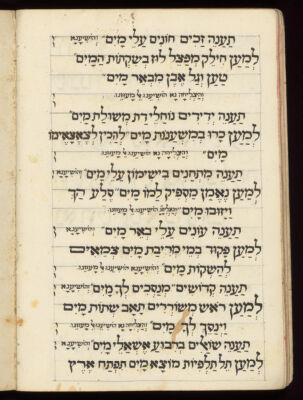 תַעֲנֶה זַכִּים חוֹנִים עֲלֵי מָיִם והושיענא
לְמַעַן חִילֵּק מַפְצֵל לוּז בְּשִׁקֲתוֹת הַמָּיִם
טָעַן וְגַל אֶבֶן מִבְּאֵר מָיִם
והצליחה נא הושיענו
תַעֲנֶה יְדִידִים נוֹחֲלֵי דָת מְשׁוּלַת מָיִם
לְמַעַן כָּרוּ בְּמִשְׁעֲנוֹתָם מָיִם לְהָכִין לְצֶאֱצָאֵימוֹ
מָיִם והצליחה נא הושיענו
תַעֲנֶה מִתְחַנְּנִים בִּישִׁימוֹן עֲלֵי מָיִם והושיענא
לְמַעַן נֶאֱמָן מַסְפִּיק לָמוֹ מָיִם סֶלַע הָךְ
וַיָּזוּבוּ מָיִם הושיענו
תַעֲנֶה עוֹנִים עֲלֵי בְאֵר מָיִם והושיענא
לְמַעַן פָּקוּד בְּמֵי מְרִיבַת מָיִם צְמֵאִים
לְהַשְׁקוֹת מָיִם והצליחה נא הושיענו
תַעֲנֶה קְדוֹשִׁים מְנַסְּכִים לְךָ מָיִם והושיענא
לְמַעַן רֹאשׁ מְשׁוֹרְרִים תָּאַב שְׁתוֹת מָיִם
וַיַּנְסֵךְ לְךָ מָיִם והצליחה נא הושיענו
תַעֲנֶה שׁוֹאֲלִים בְּרִבּוּעַ אֶשְׁאֲלֵי מָיִם והושיענא
לְמַעַן תֵּל תַּלְפִּיּוֹת מוֹצָא מָיִם תִּפְתַּח אֶרֶץ